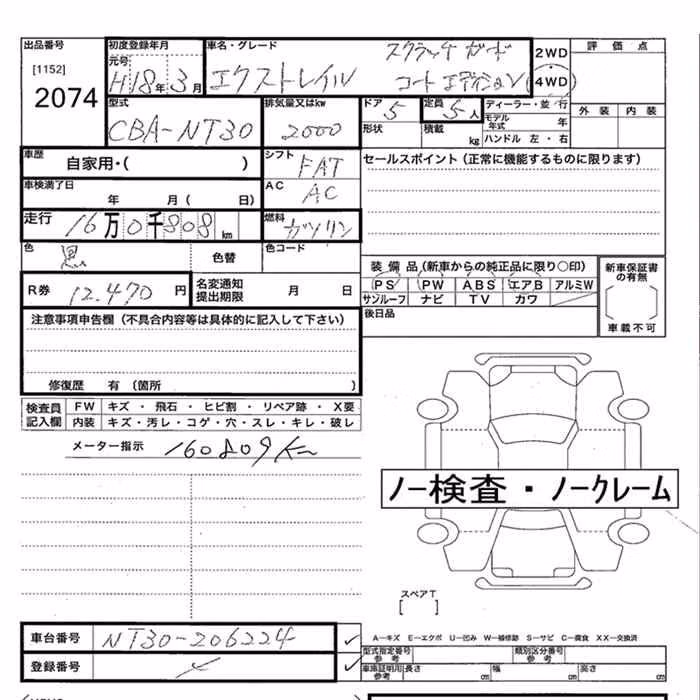 出品番号 [1152] 2074
初度登録年月 元号 H18年3月
車名・グレード エクストレイル スクラッチガードコートエディション
2WD 4WD
評価点
外装 内装
型式 CBA-NT30
排気量又はkw 2000
ドア 5 定員 5人
形状 積載 kg
ディーラー・並行
モデル年式 年
ハンドル 左・右
車歴 自家用・( )
シフト FAT
セールスポイント(正常に機能するものに限ります)
車検満了日 年 月( 日)
AC AC
走行 16万0千808km
燃料 ガソリン
色 黒 色替
色コード
装備品(新車からの純正品に限り○印)
PS PW ABS エアB アルミW
サンルーフ ナビ TV カワ
新車保証書の有無
車載不可
R券 12,470円
名変通知提出期限 月 日
後日品
注意事項申告欄(不具合内容等は具体的に記入して下さい)
修復歴 有(箇所 )
検査員記入欄
FW キズ・飛石・ヒビ割・リペア跡・X要
内装 キズ・汚レ・コゲ・穴・スレ・キレ・破レ
メーター指示 160809km
ノー検査・ノークレーム
スペアT
[ ]
車台番号 NT30-206224
登録番号
A-キズ E-エクボ U-凹み W-補修跡 S-サビ C-腐食 XX-交換済
型式指定番号参考 類別区分番号参考
車庫証明用参考 長さ cm 幅 cm 高さ cm